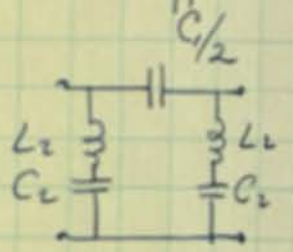 C₁/2
L₂ L₂
C₂ C₂